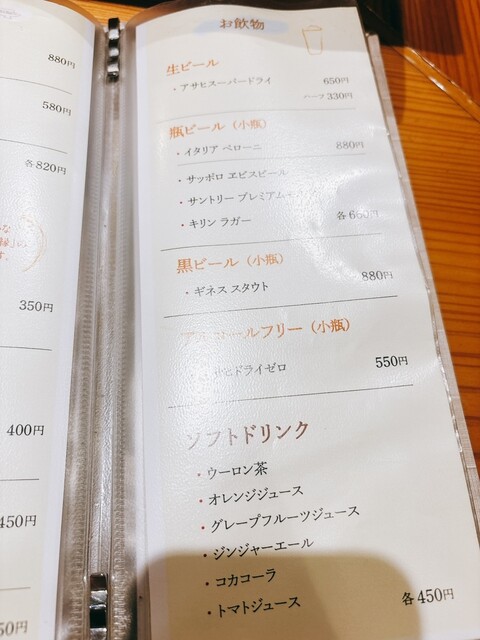 880円
580円
各820円
350円
400円
450円
お飲物
生ビール
・アサヒスーパードライ 650円
ハーフ 330円
瓶ビール（小瓶）
・イタリア ペローニ 880円
・サッポロ ヱビスビール
・サントリー プレミアム
・キリン ラガー 各660円
黒ビール（小瓶）
・ギネス スタウト 880円
フリー（小瓶）
ドライゼロ 550円
ソフトドリンク
・ウーロン茶
・オレンジジュース
・グレープフルーツジュース
・ジンジャーエール
・コカコーラ
・トマトジュース 各450円